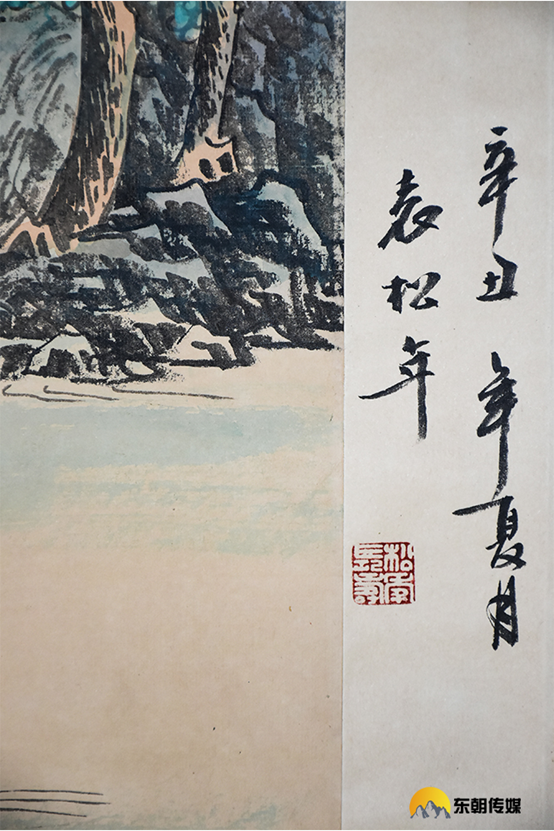 辛丑年夏月
袁松年
松年
長壽
东朝传媒